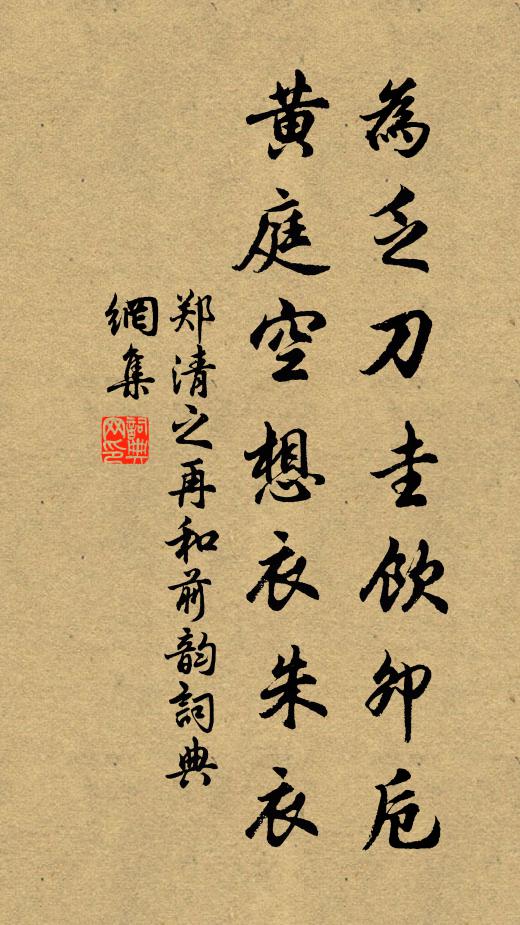 為乏刀圭飲卯卮
黃庭空想衣朱衣
郑清之再和前韵詞典
網集
詞典網印